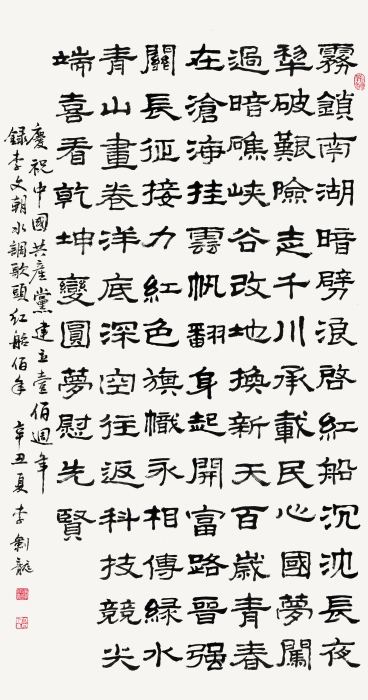 霧鎖南湖暗劈浪啓紅船沉沈長夜
犁破艱險走千川承載民心國夢闖
過暗礁峽谷改地換新天百歲青春
在滄海挂雲帆翻身起開富路晉强
關長征接力紅色旗幟永相傳緑水
青山畫卷洋底深空往返科技競尖
端喜看乾坤變圓夢慰先賢
慶祝中國共産黨建立壹佰週年
録李文朝水調歌頭紅船佰年 辛丑夏 李劍龍